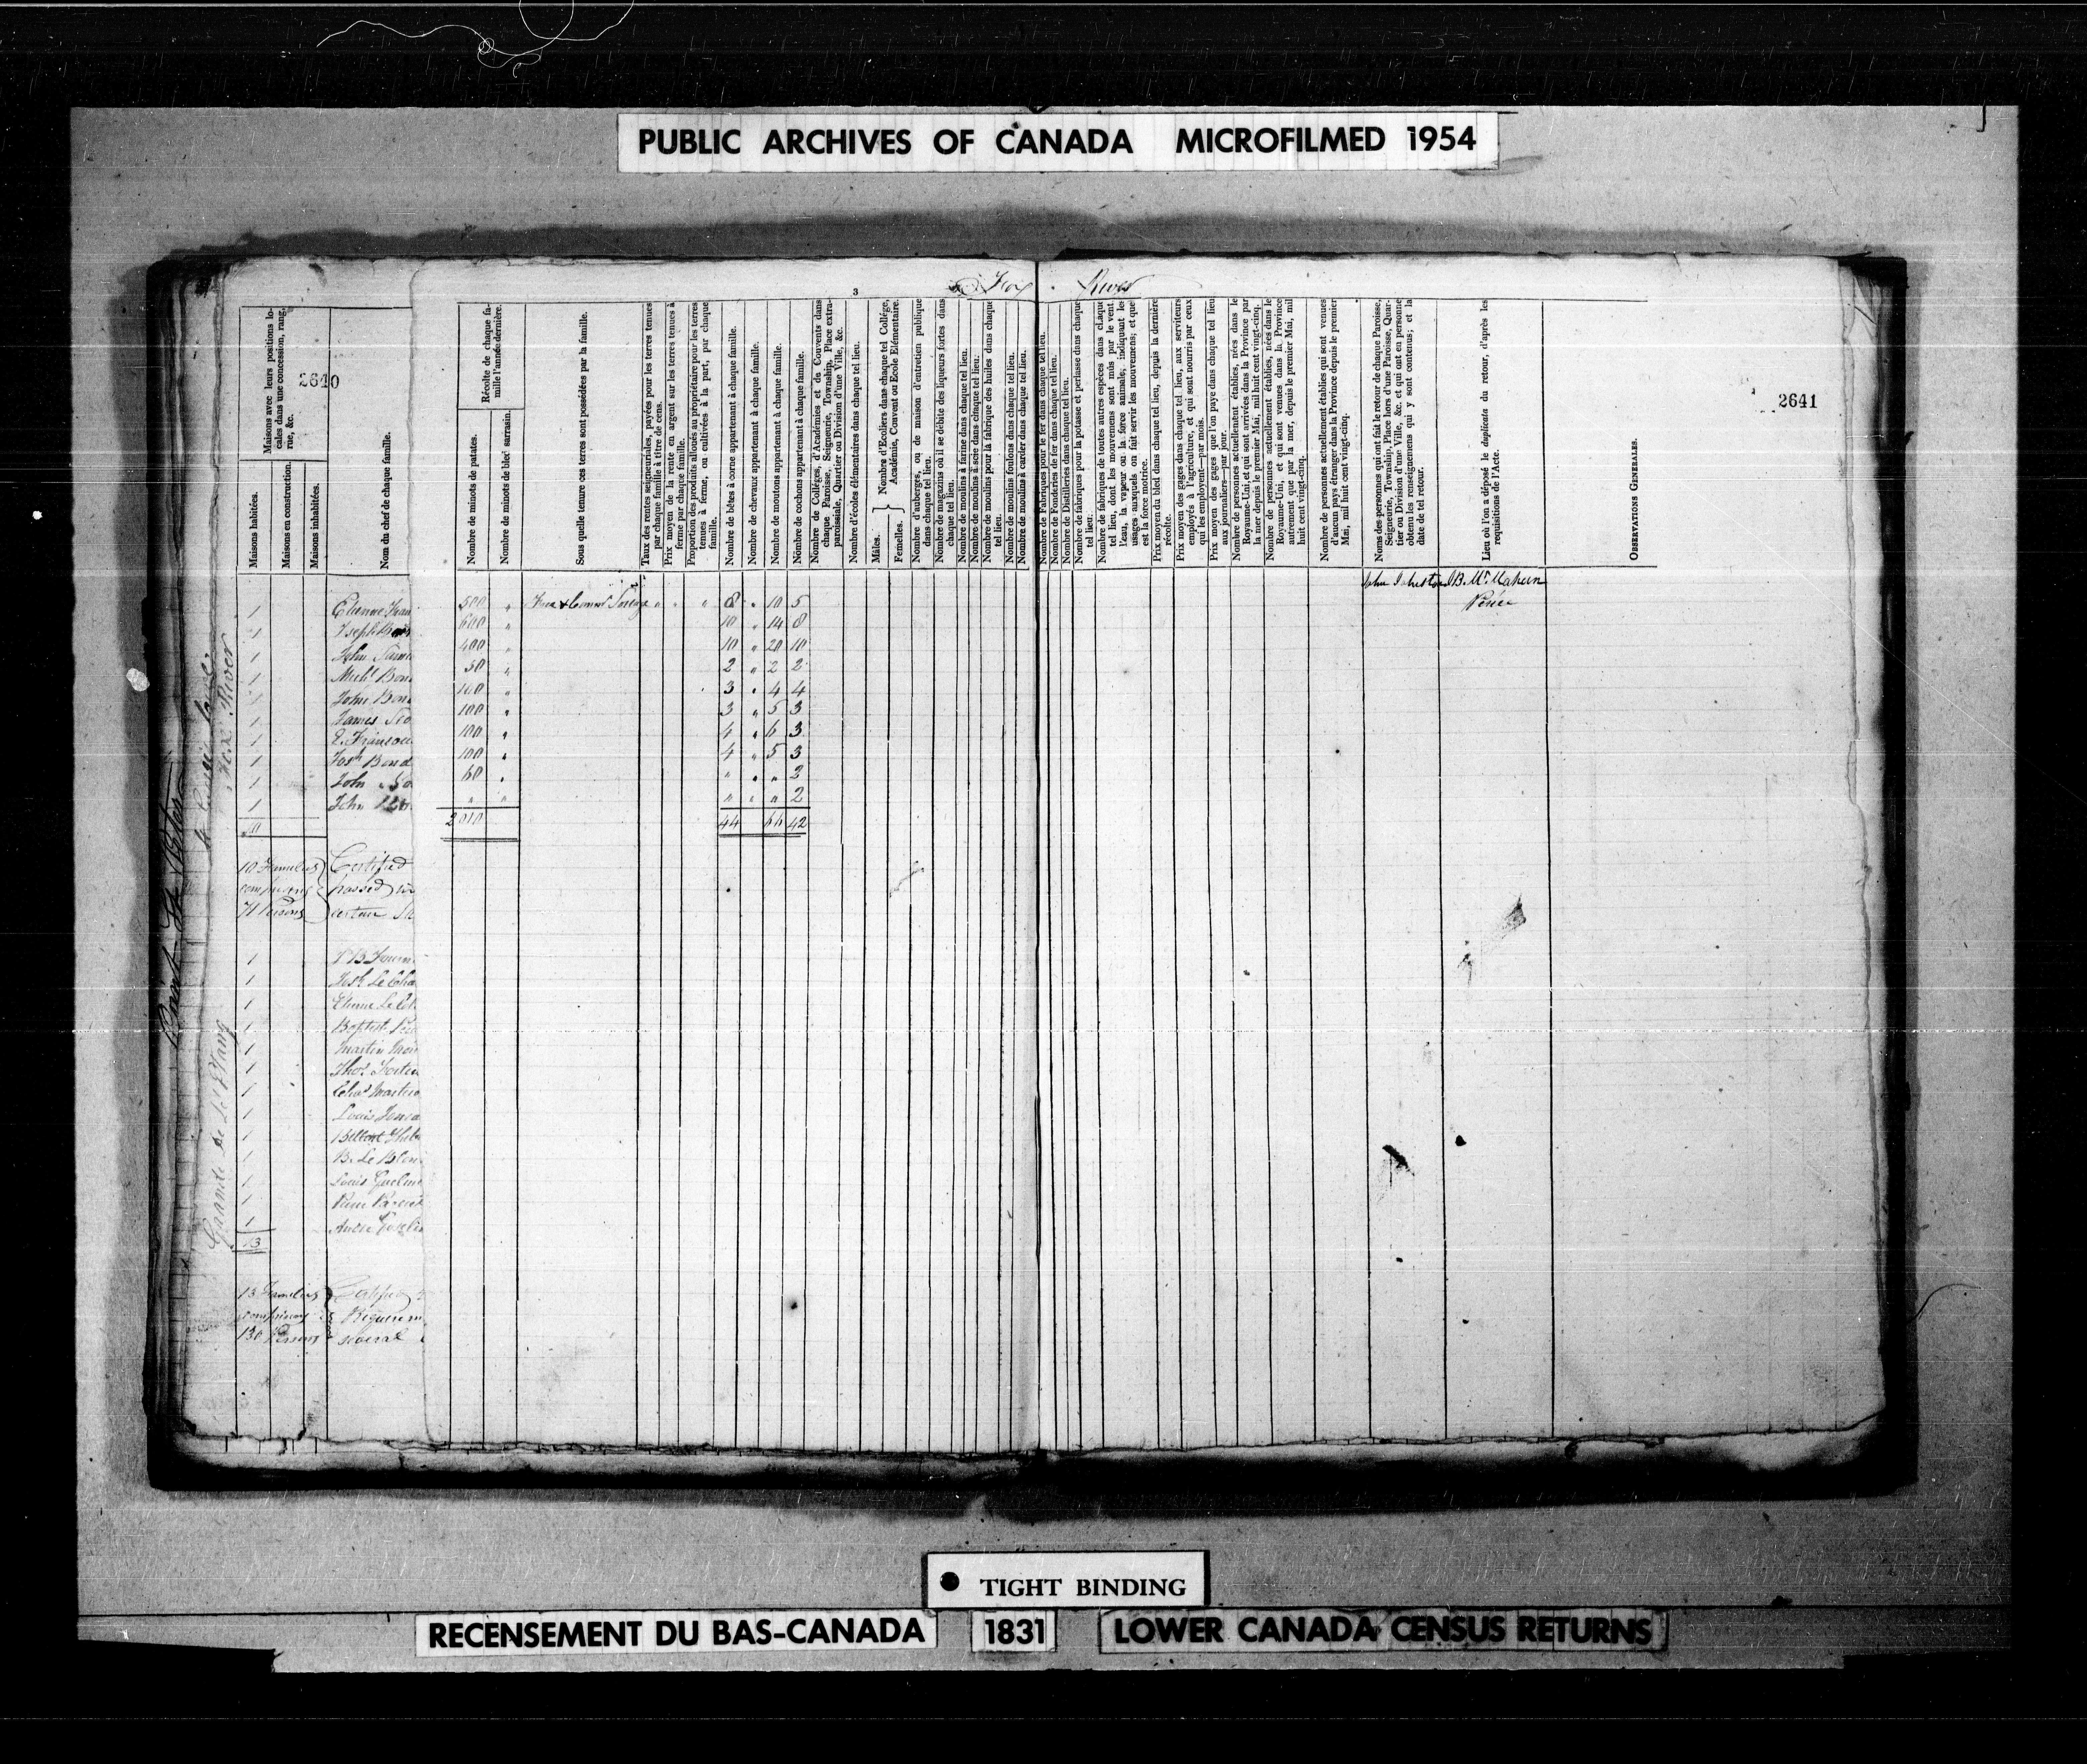 PUBLIC ARCHIVES OF CANADA MICROFILMED 1954
3
Fox River
2640
2641
Maisons avec leurs positions locales dans une concession, rang, rue, &c.
Maisons habitées.
Maisons en construction.
Maisons inhabitées.
Nom du chef de chaque famille.
Récolte de chaque famille l'année dernière.
Nombre de minots de patates.
Nombre de minots de bled sarrasin.
Sous quelle tenure ces terres sont possédées par la famille.
Taux des rentes seigneuriales, payées pour les terres tenues par chaque famille à titre de cens.
Prix moyen de la rente en argent sur les terres tenues à ferme par chaque famille.
Proportion des produits alloués au propriétaire pour les terres tenues à ferme, ou cultivées à la part, par chaque famille.
Nombre de bêtes à corne appartenant à chaque famille.
Nombre de chevaux appartenant à chaque famille.
Nombre de moutons appartenant à chaque famille.
Nombre de cochons appartenant à chaque famille.
Nombre de Colléges, d'Académies et de Couvents dans chaque Paroisse, Seigneurie, Township, Place extra-paroissiale, Quartier ou Division d'une Ville, &c.
Nombre d'écoles élémentaires dans chaque tel lieu.
Mâles.
Femelles.
Nombre d'Ecoliers dans chaque tel Collége, Académie, Couvent ou Ecole Elémentaire.
Nombre d'auberges, ou de maison d'entretien publique dans chaque tel lieu.
Nombre de magazins où il se débite des liqueurs fortes dans chaque tel lieu.
Nombre de moulins à farine dans chaque tel lieu.
Nombre de moulins à scie dans chaque tel lieu.
Nombre de moulins pour la fabrique des huiles dans chaque tel lieu.
Nombre de moulins foulons dans chaque tel lieu.
Nombre de moulins à carder dans chaque tel lieu.
Nombre de Fabriques pour le fer dans chaque tel lieu.
Nombre de Fonderies de fer dans chaque tel lieu.
Nombre de Distilleries dans chaque tel lieu.
Nombre de fabriques pour la potasse et perlasse dans chaque tel lieu.
Nombre de fabriques de toutes autres espèces dans chaque tel lieu, dont les mouvemens sont mûs par le vent, l'eau, la vapeur ou la force animale, indiquant les usages auxquels on fait servir les mouvemens; et que est la force motrice.
Prix moyen du bled dans chaque tel lieu, depuis la dernière récolte.
Prix moyen des gages dans chaque tel lieu, aux serviteurs employés à l'agriculture, et qui sont nourris par ceux qui les employent—par mois.
Prix moyen des gages que l'on paye dans chaque tel lieu aux journaliers—par jour.
Nombre de personnes actuellement établies, nées dans le Royaume-Uni et qui sont arrivées dans la Province par la mer depuis le premier Mai, mil huit cent vingt-cinq.
Nombre de personnes actuellement établies, nées dans le Royaume-Uni, et qui sont venues dans la Province autrement que par la mer, depuis le premier Mai, mil huit cent vingt-cinq.
Nombre de personnes actuellement établies qui sont venues d'aucun pays étranger dans la Province depuis le premier Mai, mil huit cent vingt-cinq.
Noms des personnes qui ont fait le retour de chaque Paroisse, Seigneurie, Township, Place hors d'une Paroisse, Quartier ou Division d'une Ville, &c. et qui ont en personne obtenu les renseignemens qui y sont contenus; et la date de tel retour.
Lieu où l'on a déposé le duplicata du retour, d'après les requisitions de l'Acte.
OBSERVATIONS GENERALES.
Point St Peter
Fox River
Grande de l'Etang
1 Etienne 500 " " " " 8 " 10 5 John B. Percée
1 Joseph 600 " 10 " 14 8
1 John 400 " 10 " 20 10
1 Michl Bon 50 " 2 " 2 2
1 John Bon 100 " 3 " 4 4
1 James 100 " 3 " 5 3
1 Francoeu 100 " 4 " 6 3
1 Josh Bond 100 " 4 " 5 3
1 John 60 " " " " 2
1 John " " " " " 2
10 2010 44 66 42
10 Families
comprising
71 Persons
Certified
passed
certain
1
1 Josh Le
1 Etienne Le
1 Baptist
1 Martin
1 Thos Fortin
1 Chas Martin
1 Louis
1
1 B. Le Blon
1 Louis
1
1 Andre Gosselin
13
13 Families
comprising
130 Persons
Requirem
several
TIGHT BINDING
RECENSEMENT DU BAS-CANADA 1831 LOWER CANADA CENSUS RETURNS